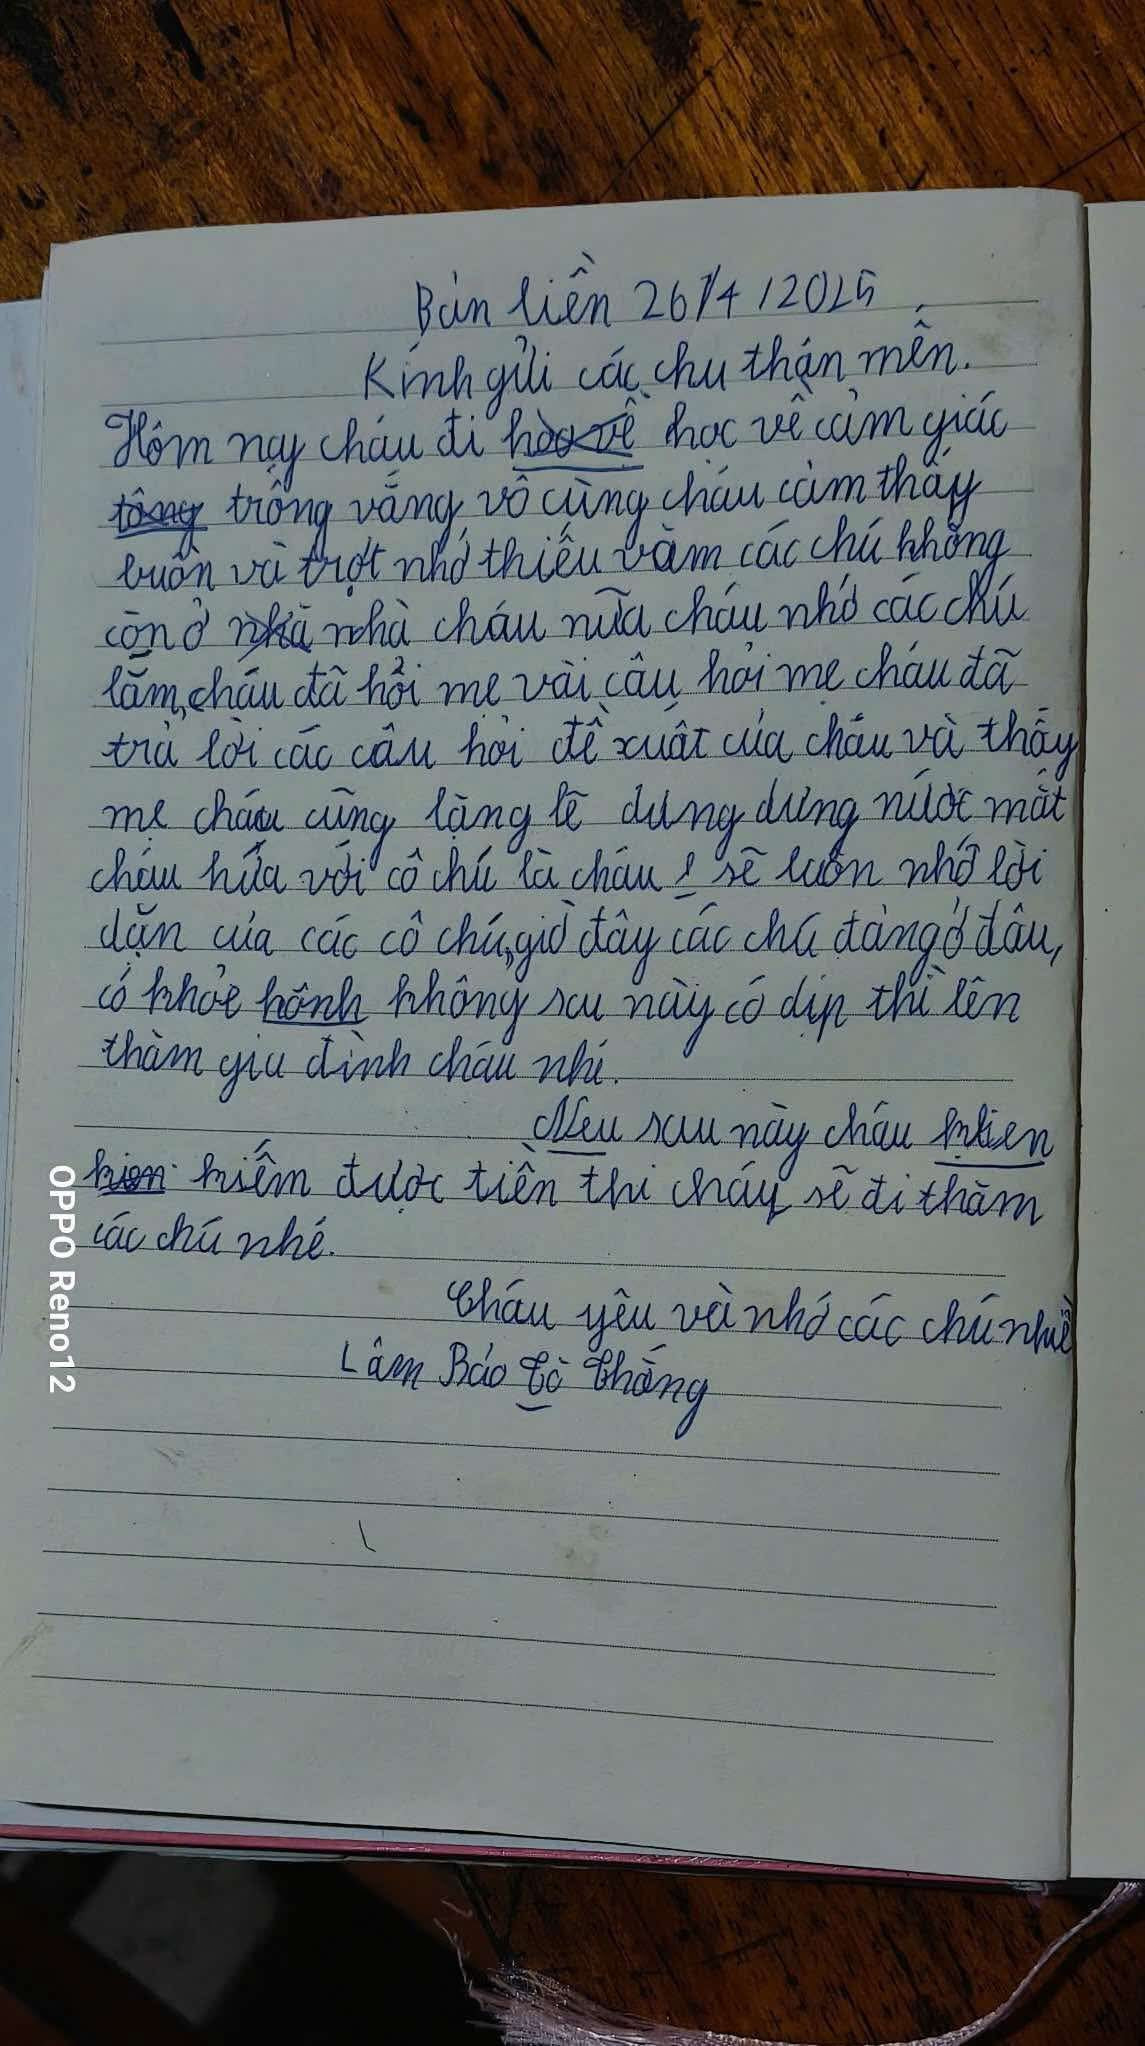 Bản liền 26/4/2025
Kính gửi các chu thận mến.
Hôm nay cháu đi học về cảm giác
trông vắng vô cùng cháu cảm thấy
buồn và trợt nhớ thiếu vắm các chú không
còn ở nhà cháu nữa cháu nhớ các chú
lắm, cháu đã hỏi mẹ vài câu hỏi mẹ cháu đã
trả lời các câu hỏi đề xuất của cháu và thấy
mẹ cháu cũng lặng lẽ dưng dưng nước mắt
cháu hứa với cô chú là cháu sẽ luôn nhớ lời
dặn của các cô chú, giờ đây các chú đang ở đâu,
có khỏe không sau này có dịp thì lên
thăm gia đình cháu nhé.
Neu sau này cháu
kiếm được tiền thì cháu sẽ đi thăm
các chú nhé.
Cháu yêu và nhớ các chú nhiề
Lâm Bảo Cò Thắng
OPPO Reno12